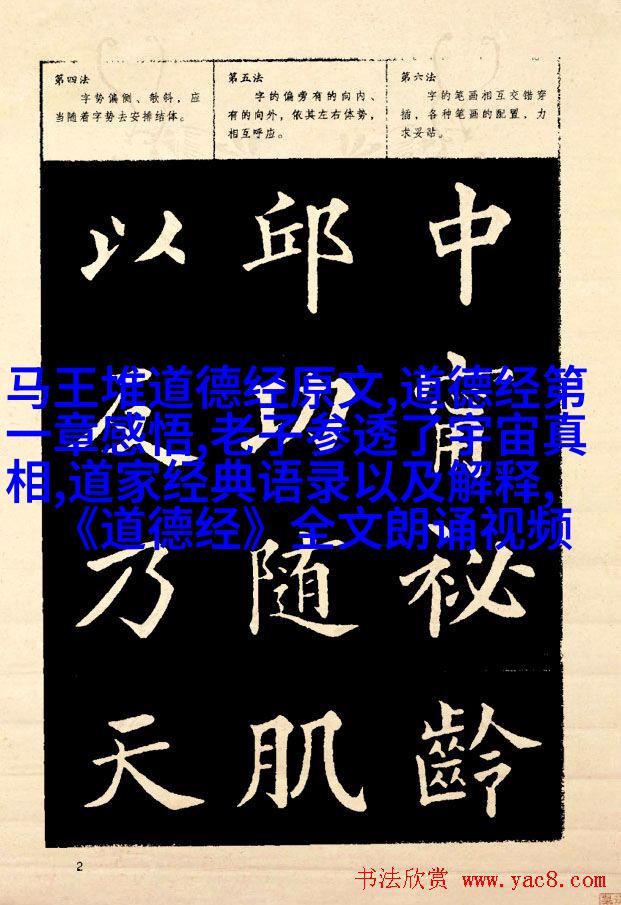 第四法
字势偏侧、欹斜，应
当随着字势去安排结体。
第五法
字的偏旁有的向内、
有的向外，依其左右体势，
相互呼应。
第六法
字的笔画相互交错穿
插，各种笔画的配置，力
求妥贴。
以 邱 中
功 甯
马王堆道德经原文,道德经第
一章感悟,老子参透了宇宙真
相,道家经典语录以及解释,
《道德经》全文朗诵视频
乃 随 秘
天 肌 齡
2
书法欣赏 www.yac8.com